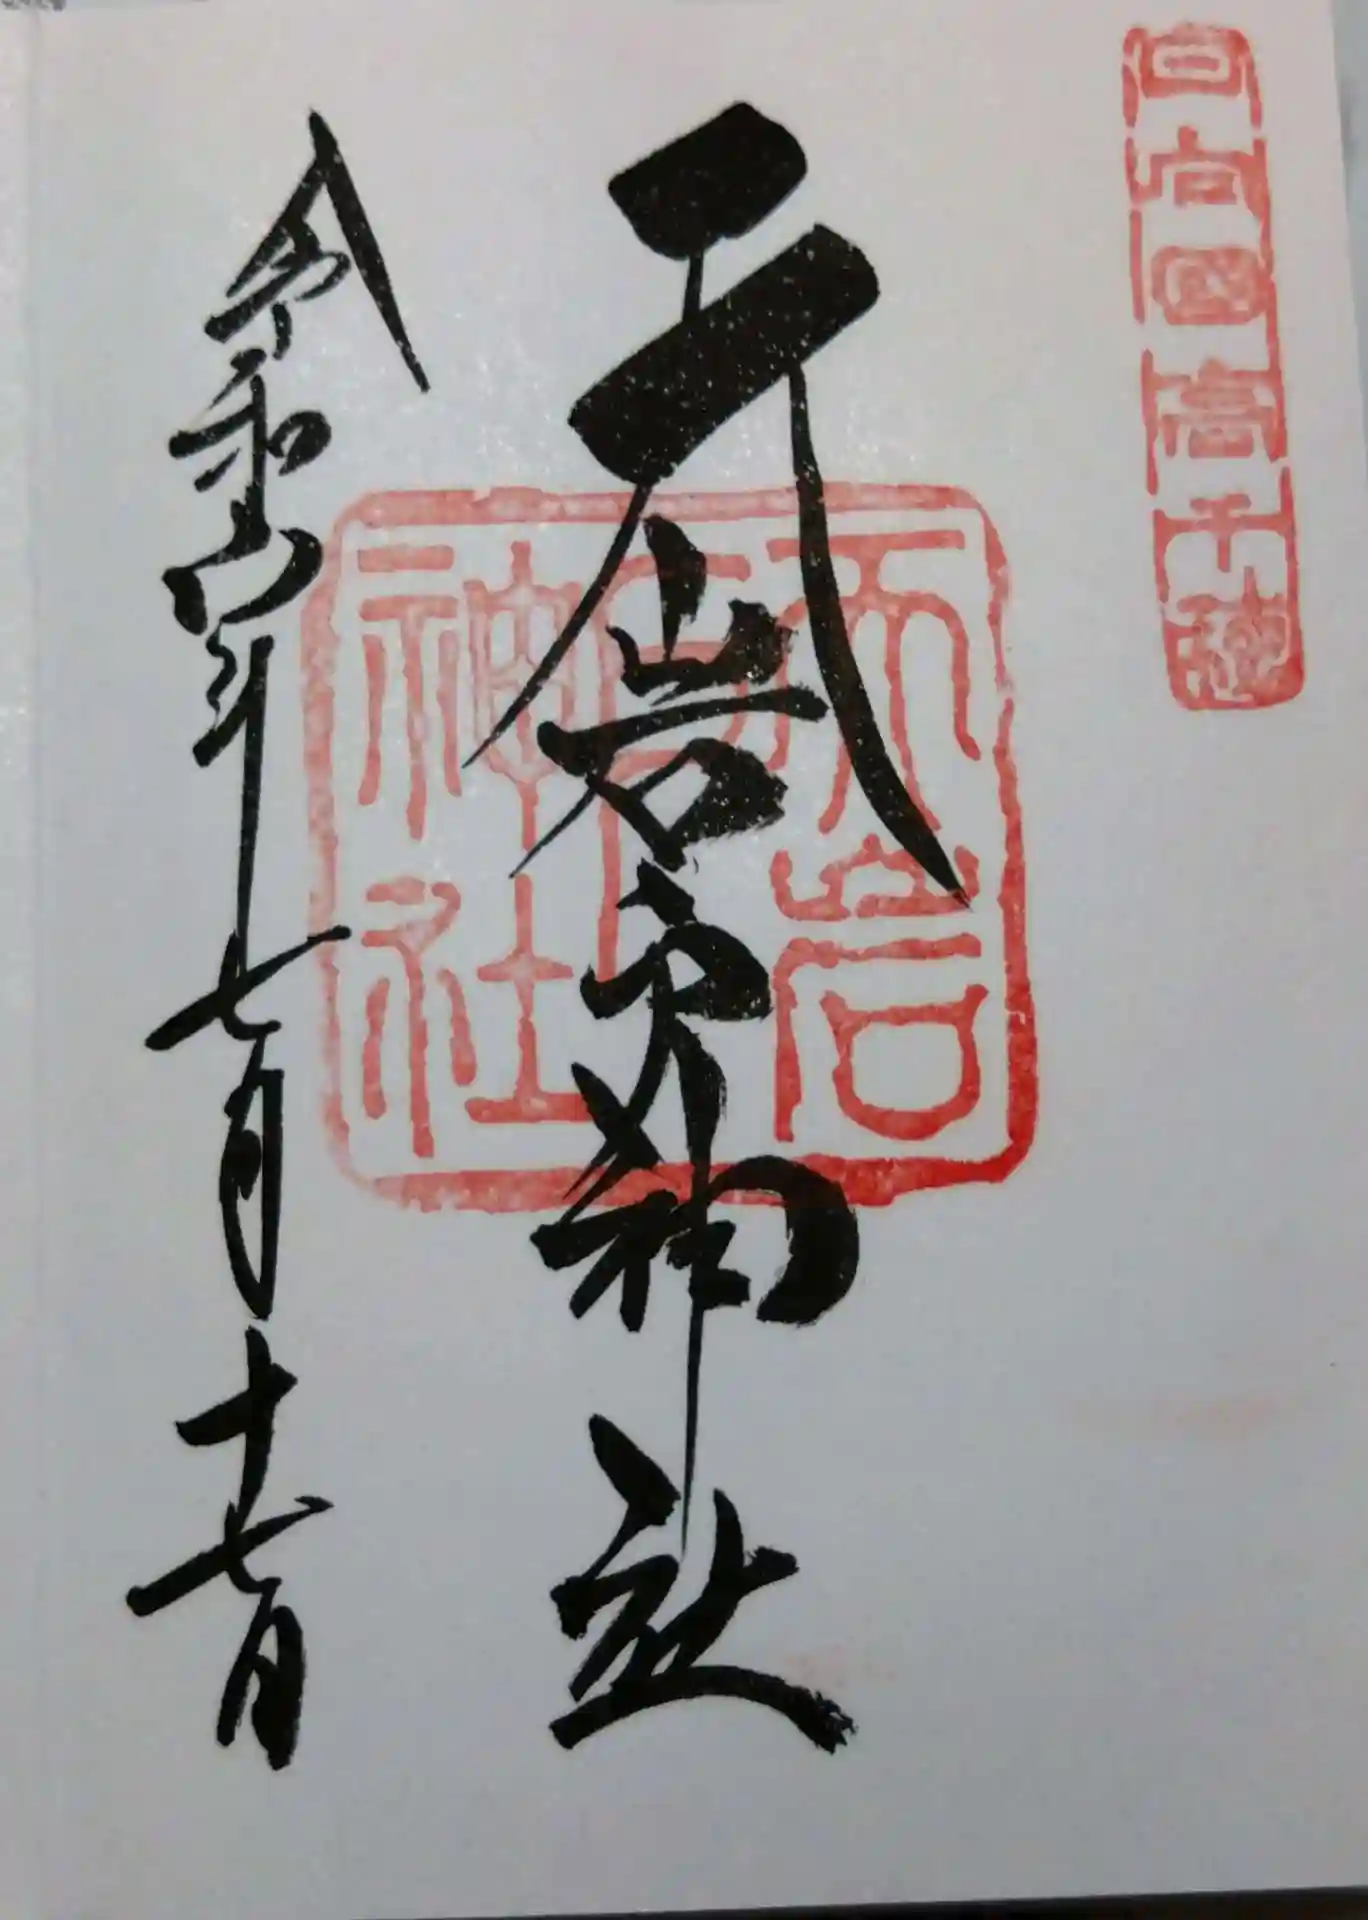 日向国高千穂
天岩戸神社
天岩戸神社
令和四年七月十七日